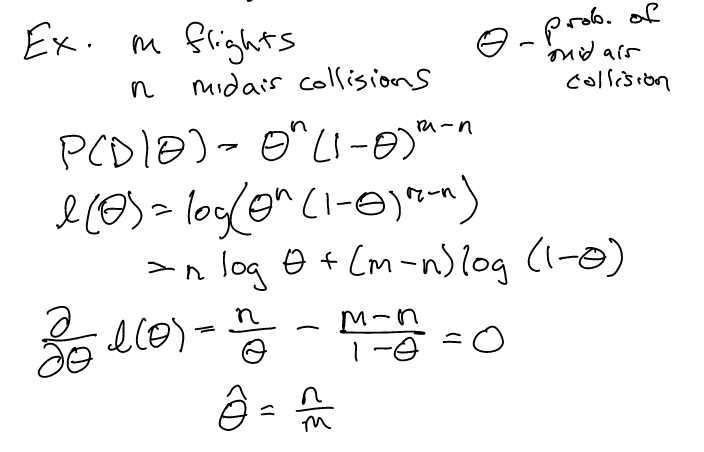 Ex. m flights
n midair collisions
θ - prob. of
mid air
collision
P(D|θ) = θ^n (1-θ)^{m-n}
l(θ) = log(θ^n (1-θ)^{m-n})
= n log θ + (m-n) log (1-θ)
∂/∂θ l(θ) = n/θ - (m-n)/(1-θ) = 0
θ̂ = n/m